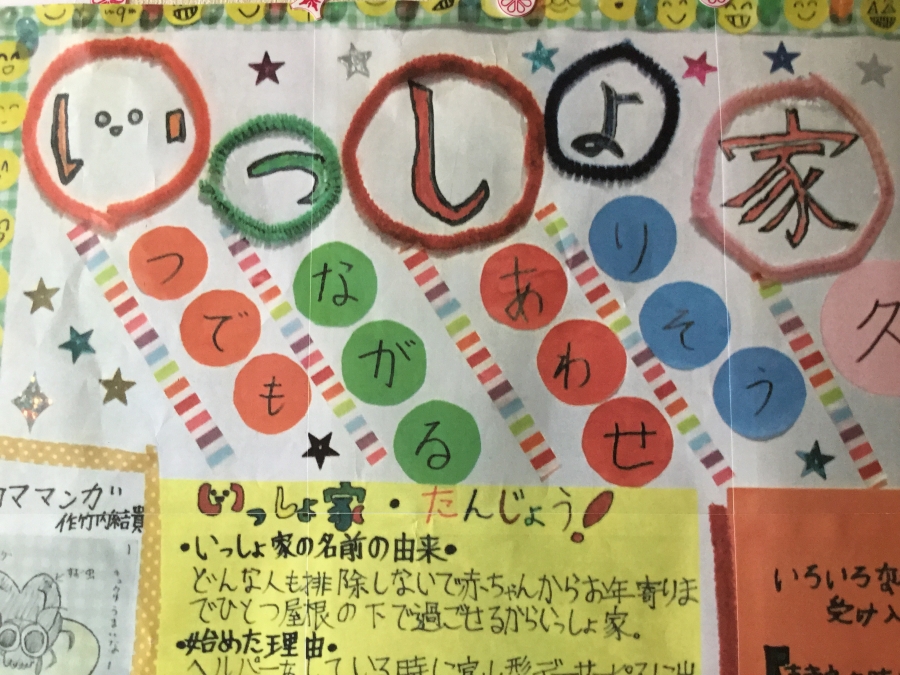 いっしょ家
いつでも
つながる
しあわせ
よりそう
久
マンガ
作 竹内結貴
いっしょ家・たんじょう!
•いっしょ家の名前の由来•
どんな人も排除しないで赤ちゃんからお年寄りま
でひとつ屋根の下で過ごせるからいっしょ家。
•始めた理由•
ヘルパーをしている時に富山形デーサービスに出
いろいろな
受け入